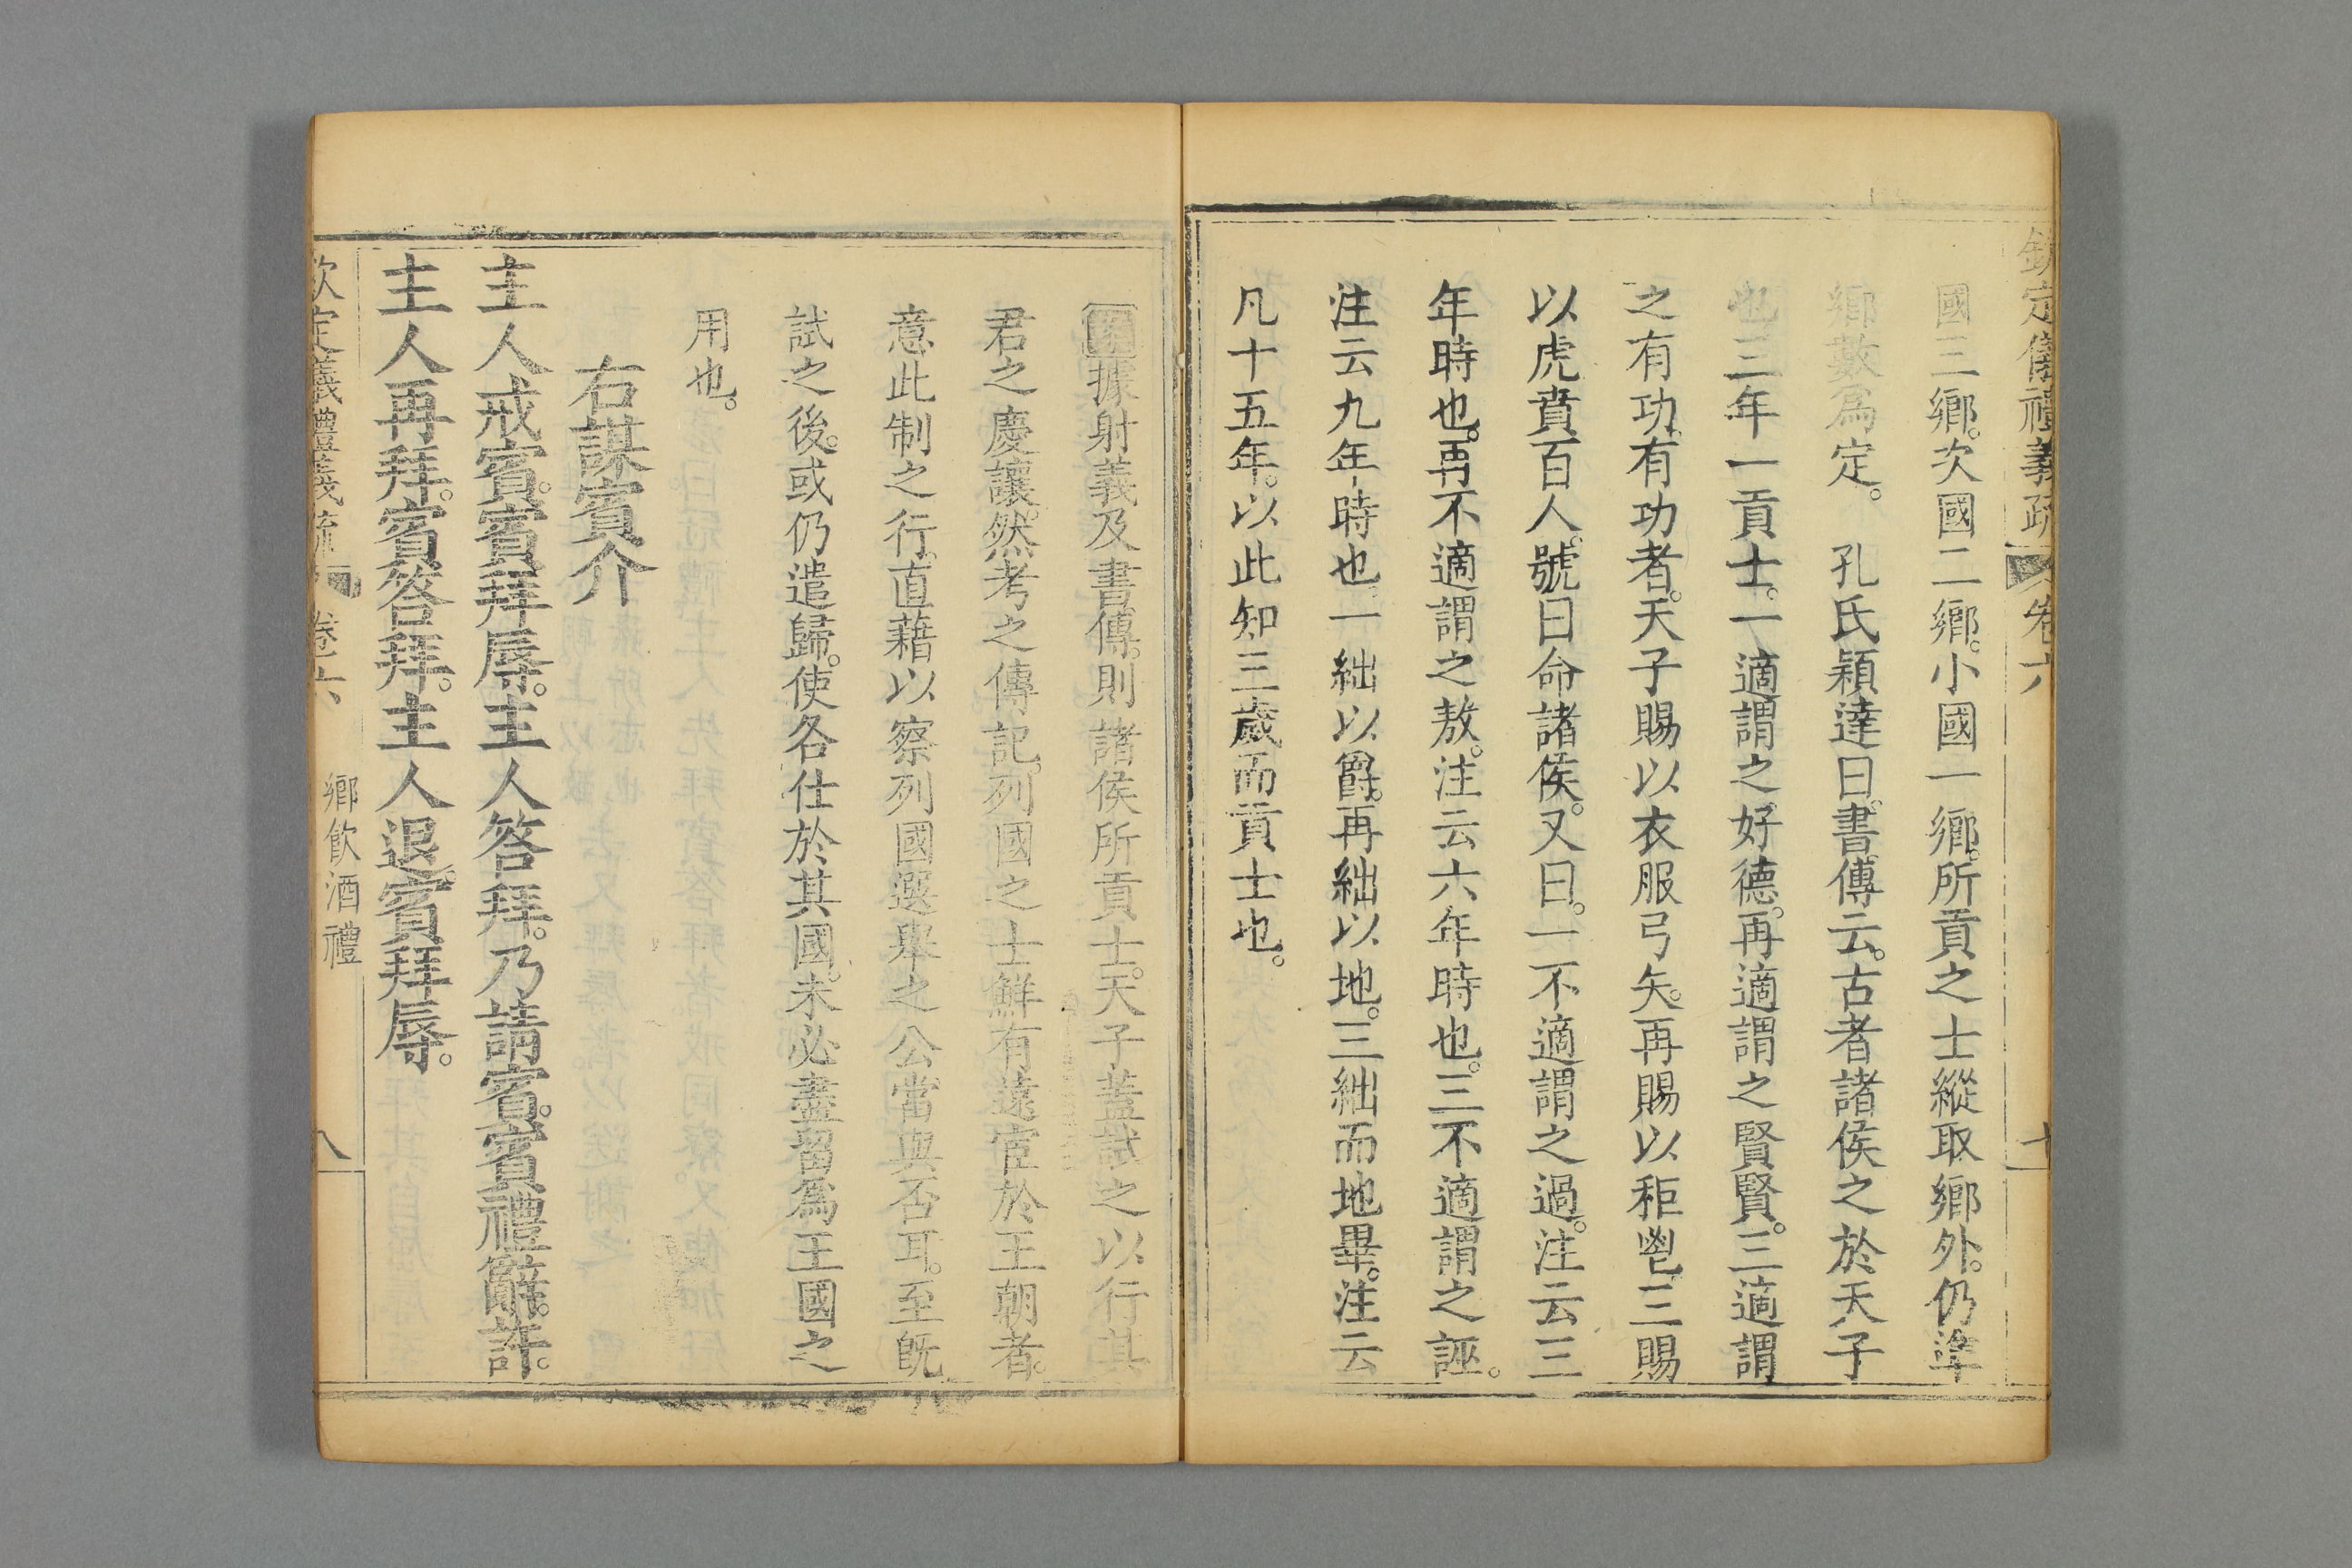 欽定儀禮義疏 卷六
國三鄉。次國二鄉。小國一鄉。所貢之士縱取鄉外。仍準
鄉數爲定。 孔氏穎達曰。書傳云。古者諸侯之於天子
也三年一貢士。一適謂之好德。再適謂之賢賢。三適謂
之有功。有功者。天子賜以衣服弓矢。再賜以秬鬯三賜
以虎賁百人。號曰命諸侯。又曰。一不適謂之過。注云三
年時也。再不適謂之敖。注云六年時也。三不適謂之誣。
注云九年時也。一絀以爵。再絀以地。三絀而地畢。注云
凡十五年。以此知三歲而貢士也。
案據射義及書傳。則諸侯所貢士。天子蓋試之以行其
君之慶讓。然考之傳記。列國之士鮮有遠宦於王朝者。
意此制之行。直藉以察列國選舉之公當與否耳。至旣
試之後。或仍遣歸。使各仕於其國。未必盡留爲王國之
用也。
右謀賓介
主人戒賓。賓拜辱。主人答拜。乃請賓。賓禮辭。許。
主人再拜。賓答拜。主人退。賓拜辱。
欽定義禮義疏 卷六 鄉飲酒禮 八